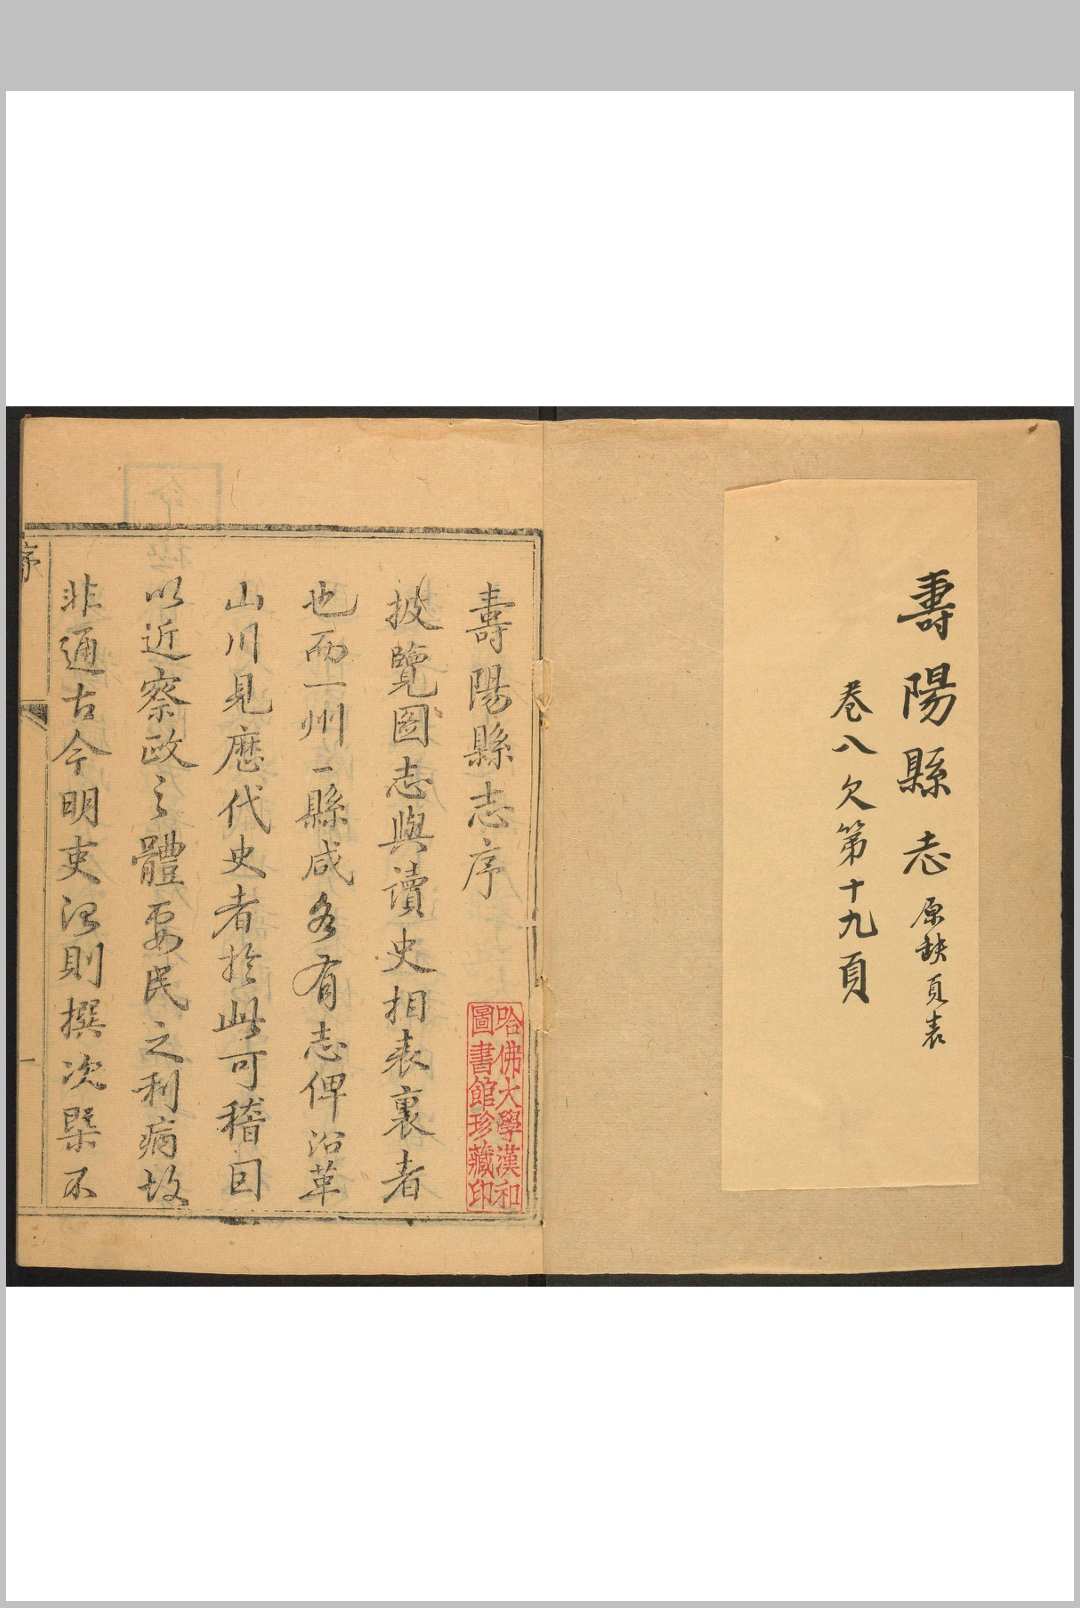 壽陽縣志 原缺頁表
卷八欠第十九頁
壽陽縣志序
披覽圖志與讀史相表裏者
也而一州一縣咸各有志俾沿革
山川見歷代史者於此可稽因
以近察政之體要民之利病故
非通古今明吏治則撰次槩不
序
哈佛大學漢和
圖書館珍藏印